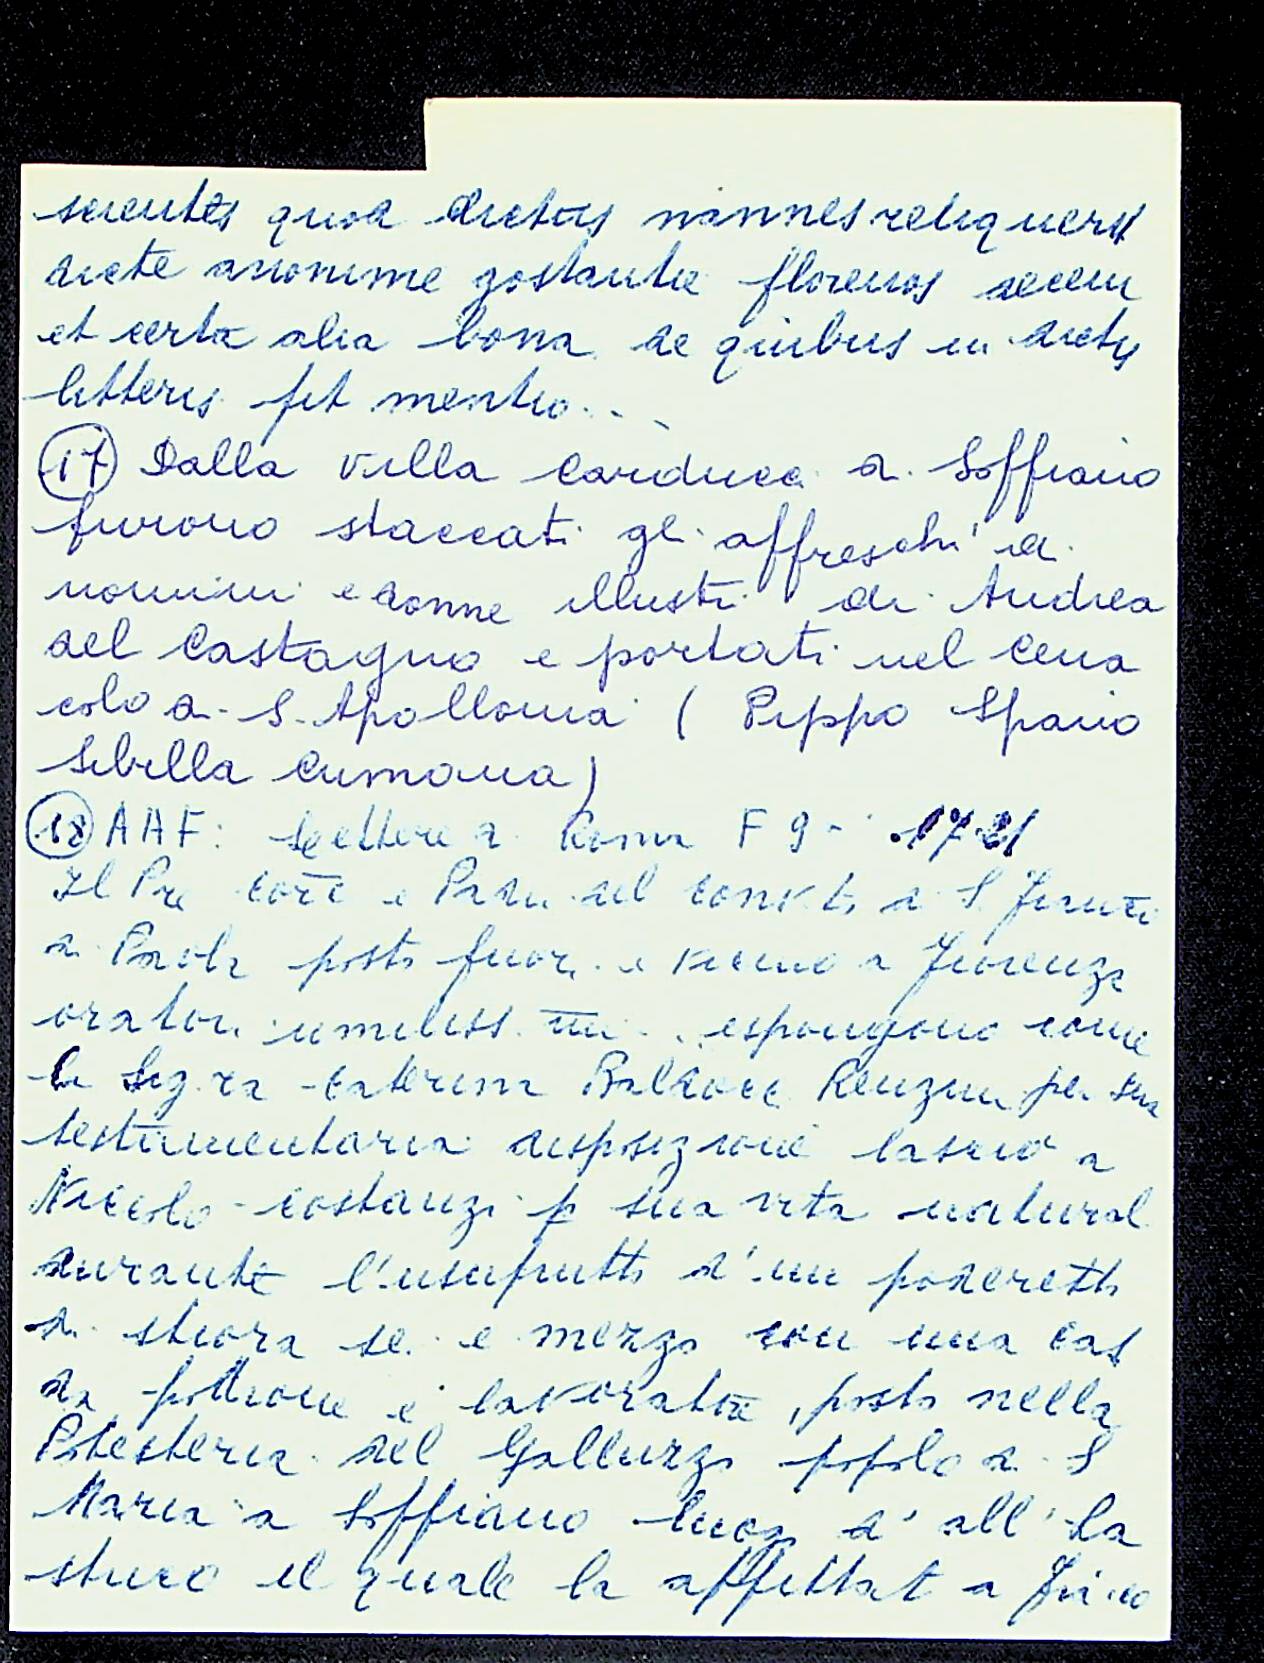 serentes quod dictus nannes reliquerit
dicte anonime gostantie florenos decem
et certa alia bona de quibus in dictis
litteris fit mentio...
(17) Dalla villa Carducci a Soffiano
furono staccati gli affreschi di
uomini e donne illustri di Andrea
del Castagno e portati nel Cena
colo di S. Apollonia (Pippo Spano
Sibilla Cumana)
(18) AAF: Lettere a Roma F 9 - 1721
Il Pre Corre e Padri del conv.to di S. Franco
di Paola posto fuori e vicino a Fiorenza
oratori umiliss. espongono come
la Sig.ra Caterina Baldocci Renzini per sua
testamentaria disposizione lasciò a
Niccolo Costanzi p sua vita natural
durante l'usufrutto d'un poderetto
di stiora sei e mezzo con una casa
da padrone e lavoratore, posto nella
Potesteria del Galluzzo popolo di S
Maria a Soffiano luogo d° all' La
struco il quale la affittat a